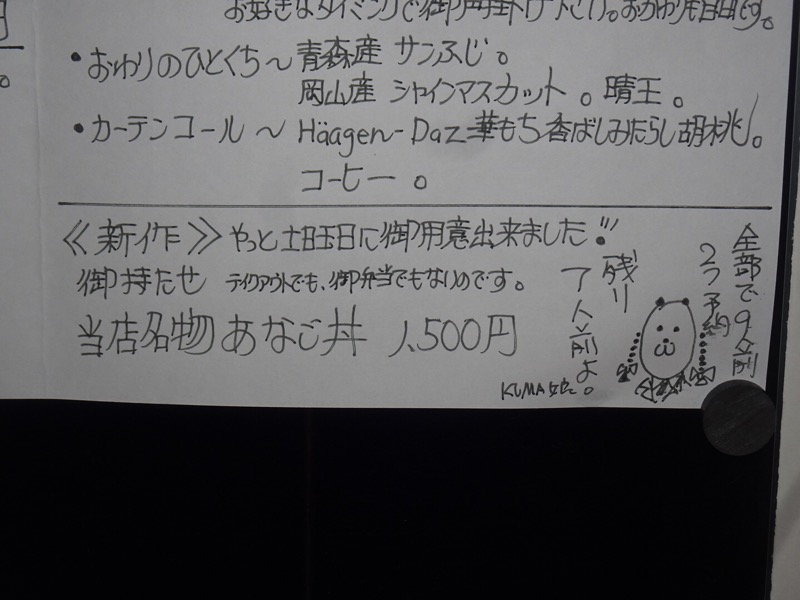 お好きなタイミングで御声掛け下さい。おかわり自由です。
・おわりのひとくち～青森産 サンふじ。
岡山産 シャインマスカット。晴王。
・カーテンコール～Häagen-Daz華もち香ばしみたらし胡桃。
コーヒー。
≪新作≫やっと土曜日に御用意出来ました!!!
御持たせ テイクアウトでも、御弁当でもないのです。
当店名物あなご丼 1,500円
全部で9人前
2つ予約
残り
7人前よ。
KUMA